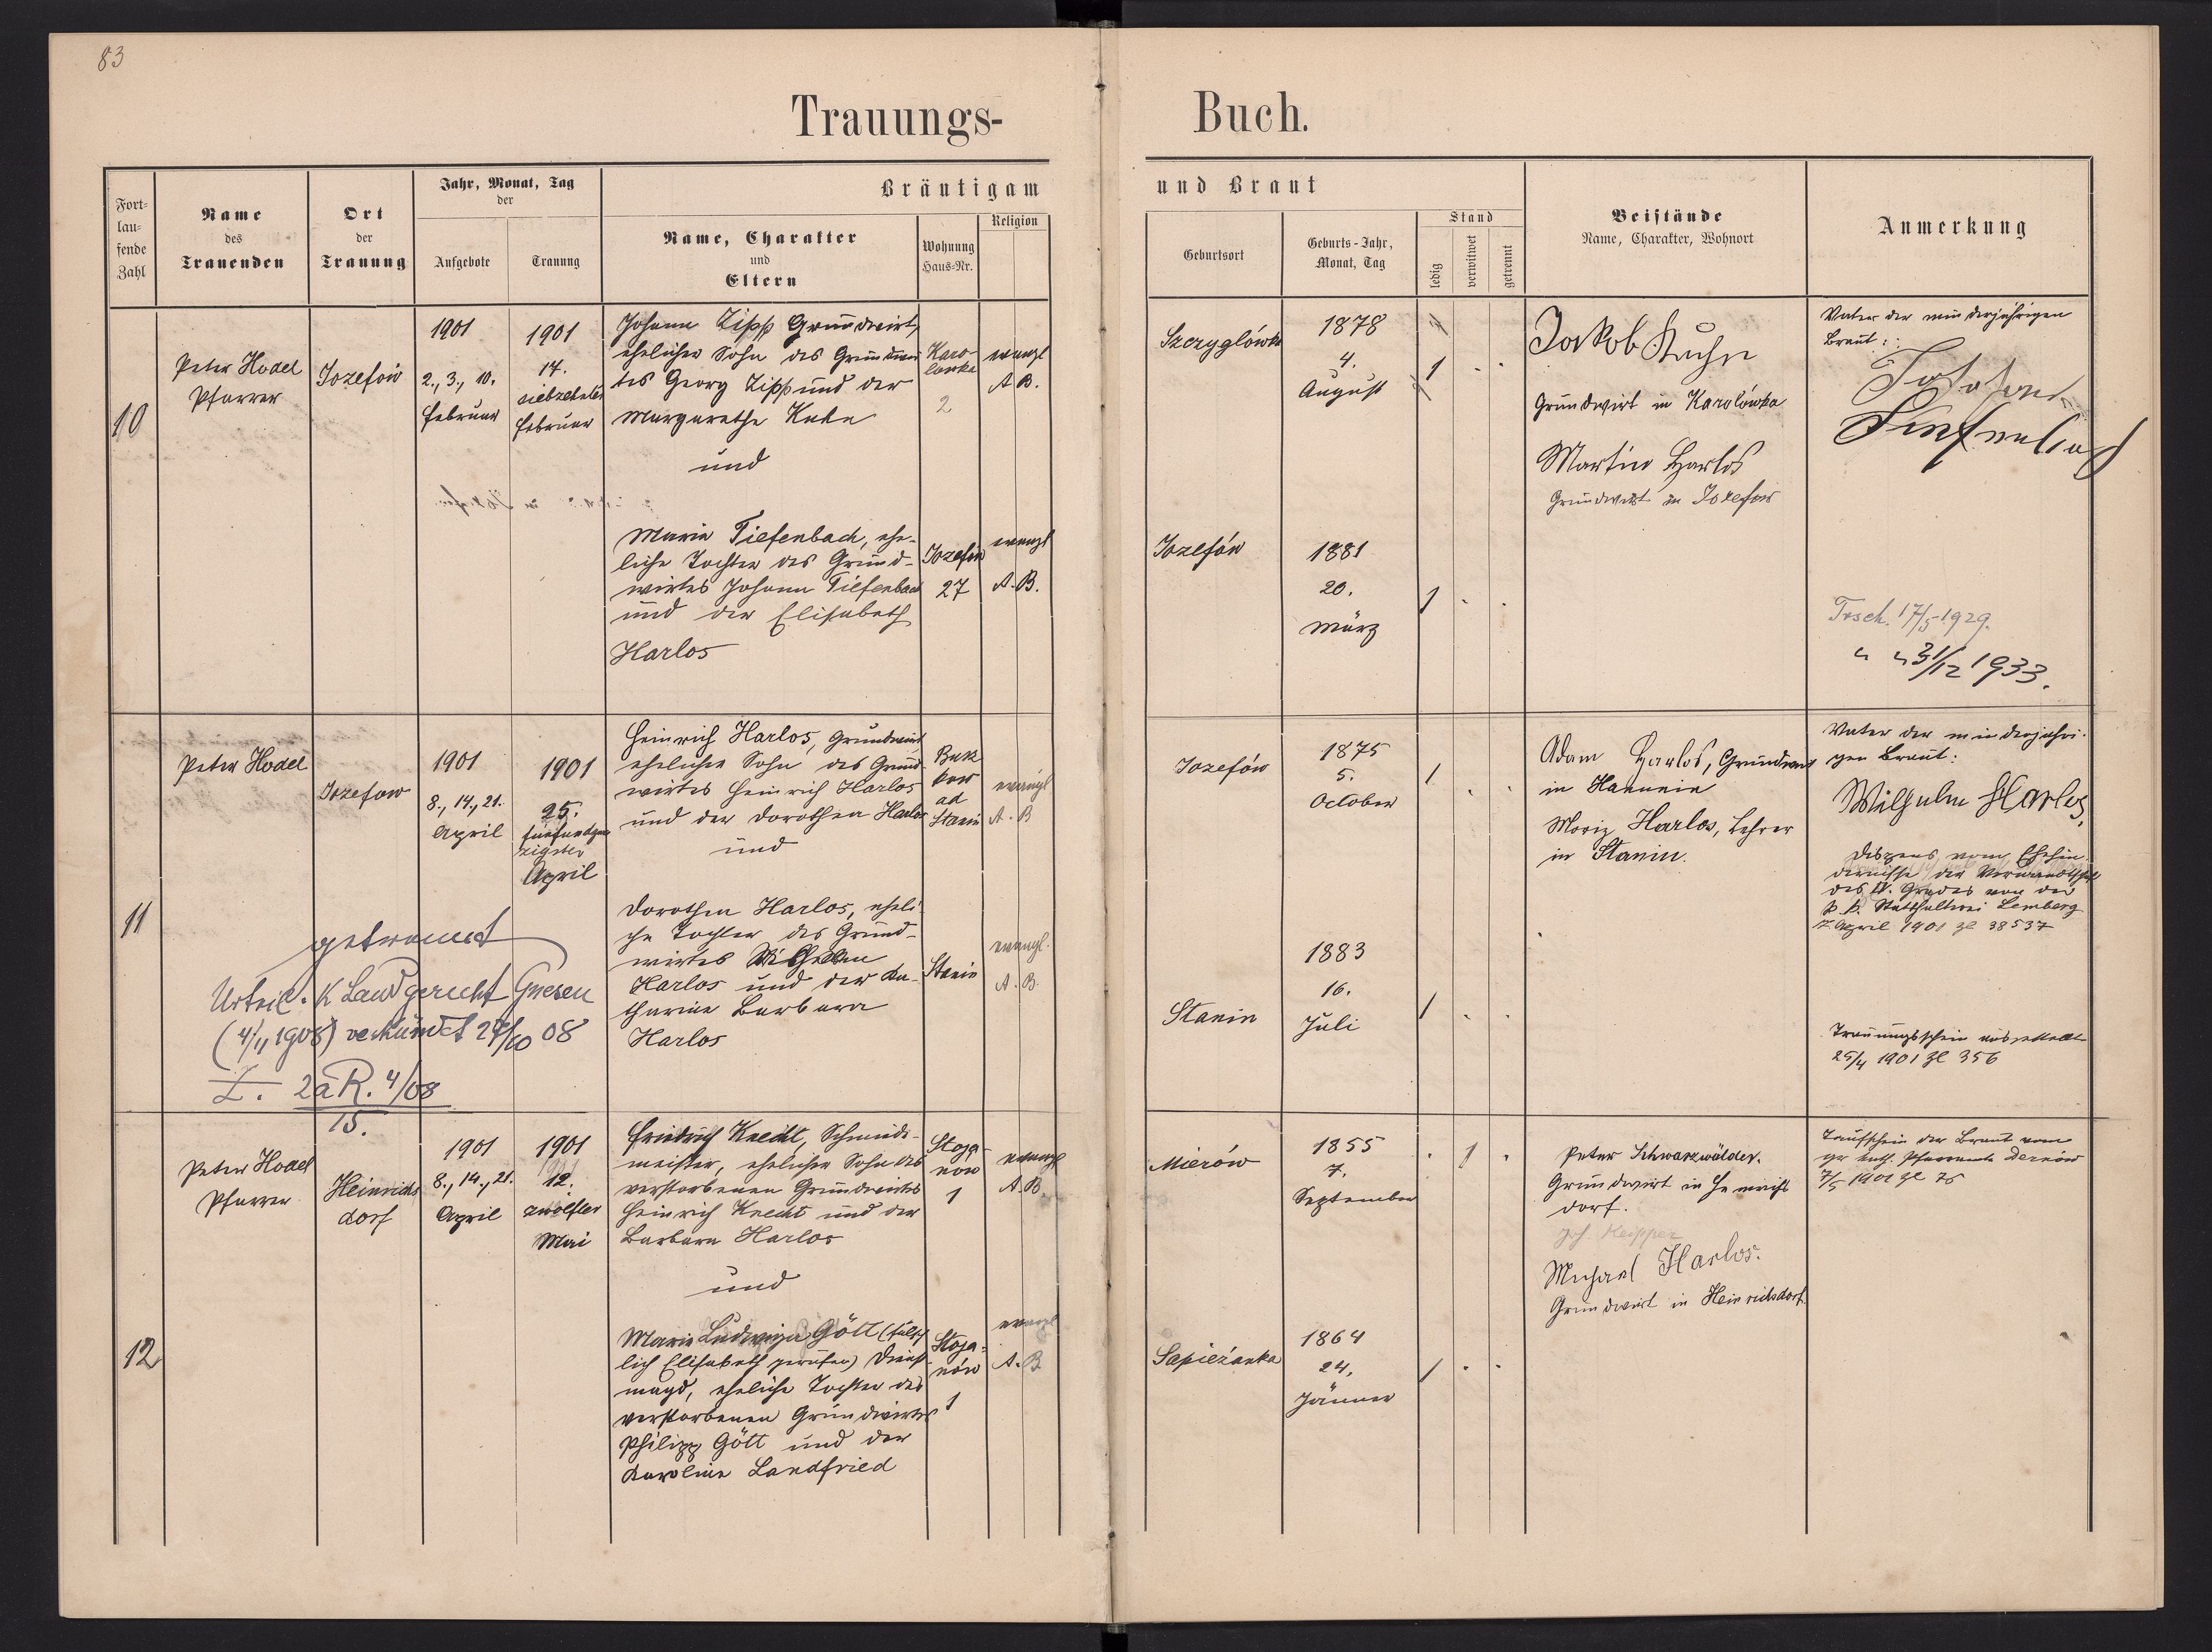 83
Trauungs-
Buch.
Fort-
lau-
fende
Zahl
Name
des
Trauenden
Ort
der
Trauung
Jahr, Monat, Tag
der
Aufgebote
Trauung
Bräutigam
Name, Charakter
und
Eltern
Wohnung
Haus-Nr.
Religion
und Braut
Geburtsort
Geburts-Jahr,
Monat, Tag
Stand
ledig
verwitwet
getrennt
Beistände
Name, Charakter, Wohnort
Anmerkung
10
Peter Hodel
Pfarrer
Jozefow
1901
2., 3., 10.
Februar
1901
17.
siebzehnter
Februar
Johann Zipp Grundwirt,
ehelicher Sohn des Grundwir-
tes Georg Zipp und der
Margarethe Kuhn
und
Karo-
lowka
2
evangl
A.B.
Szczyglówka
1878
4.
August
1
Jakob Kuhn
Grundwirt in Karolówka
Martin Harlos
Grundwirt in Jozefow
Vater der minderjährigen
Braut:
Johann
Tiefenbach
Maria Tiefenbach, ehe-
liche Tochter des Grund-
wirtes Johann Tiefenbach
und der Elisabeth
Harlos
Jozefow
27
evangl
A.B.
Jozefów
1881
20.
März
1
Trsch. 17/5 1929.
" " 31/12 1933.
11
Peter Hodel
Jozefow
1901
8., 14., 21.
April
1901
25.
fünfundzwan-
zigster
April
Heinrich Harlos, Grundwirt
ehelicher Sohn des Grund-
wirtes Heinrich Harlos
und der Dorothea Harlos
und
ad
Stanin
evangl
A.B
Jozefów
1875
5.
October
1
Adam Harlos, Grundwirt
in Hanunin
Moriz Harlos, Lehrer
in Stanin.
Vater der minderjähri-
gen Braut:
Wilhelm Harlos,
Dispens vom Ehehin-
dernisse der Verwandtschaft
des IV. Grades von der
k. k. Statthalterei Lemberg
7. April 1901 Zl 38537
Dorothea Harlos, eheli-
che Tochter des Grund-
wirtes Wilhelm
Harlos und der Ka-
tharina Barbara
Harlos
Stanin
evangl.
A.B.
Stanin
1883
16.
Juli
1
Trauungsschein ausgestellt
25/4 1901 Zl 356
getrennt
Urteil. K Landgericht Gnesen
(4/11 1908) verkündet 27/10 08
Z. 2aR. 4/08
15.
12
Peter Hodel
Pfarrer
Heinrichs
dorf
1901
8., 14., 21.
April
1901
12.
zwölfter
Mai
Friedrich Knecht, Schmiede-
meister, ehelicher Sohn des
verstorbenen Grundwirtes
Heinrich Knecht und der
Barbara Harlos
und
Stoja-
now
1
evangl
A.B.
Mierów
1855
7.
September
1
Peter Schwarzwälder.
Grundwirt in Heinrichs
dorf.
Michael Harlos.
Grundwirt in Heinrichsdorf.
Taufschein der Braut vom
gr kath. Pfarramte Dernów
7/5 1901 Zl 75
Maria Ludwiga Gött (fälsch-
lich Elisabeth gerufen) Dienst-
magd, eheliche Tochter des
verstorbenen Grundwirtes
Philipp Gött und der
Karoline Landfried
Stoja-
nów
1
evangl
A.B
Sapieżanka
1864
24.
Jänner
1